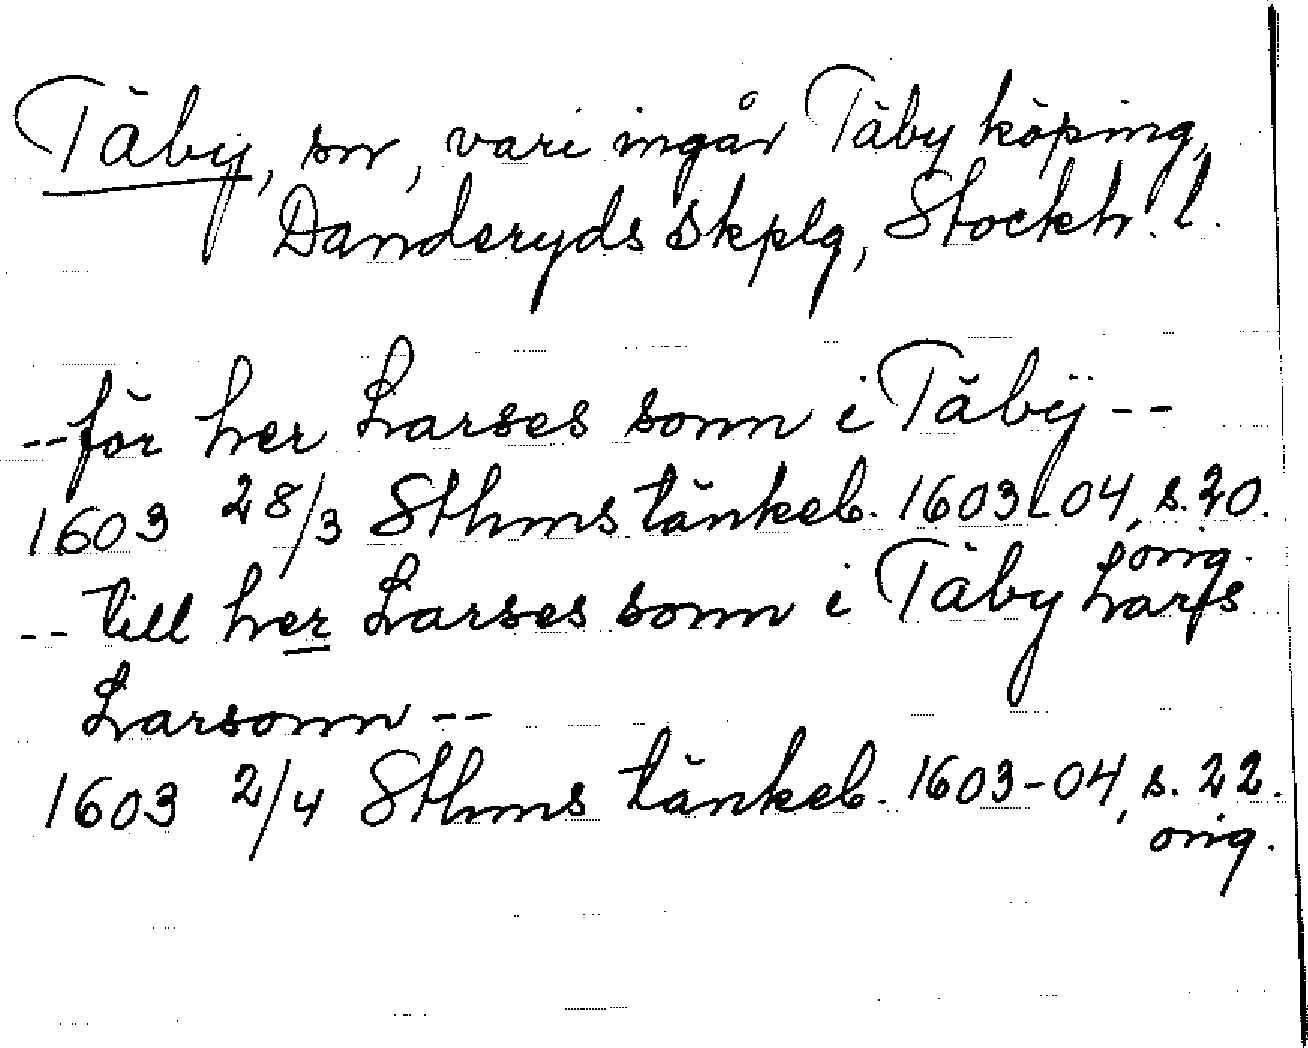 Täby, sn, vari ingår Täby köping,
Danderyds skplg, Stockh. l.
--för her Larses sonn i Täbÿ--
1603 28/3 Sthms tänkeb. 1603-04, s. 20.
orig.
-- till her Larses sonn i Täby Larss
Larsonn--
1603 2/4 Sthms tänkeb. 1603-04, s. 22.
orig.